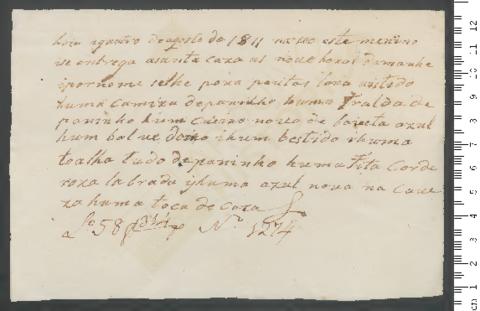 hoje aquatro deagosto de 1811 naceo este menino
se entrega asanta caza as nove horas damanhe
ipornome selhe poxa
huma camiza depaninho huma fralda de
paninho hum cueiro novo de baieta azul
hum bestido ihuma
toalha tudo depaninho huma fita corde
roza labrada ihuma azul nova na cave
sa huma toca de caza
a fo 58 No 1274